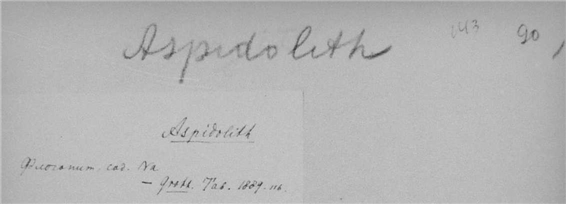 Aspidolith 143 90,
Aspidolith
Флогопит. сод. Na
— Groth. Tab. 1889. 116.